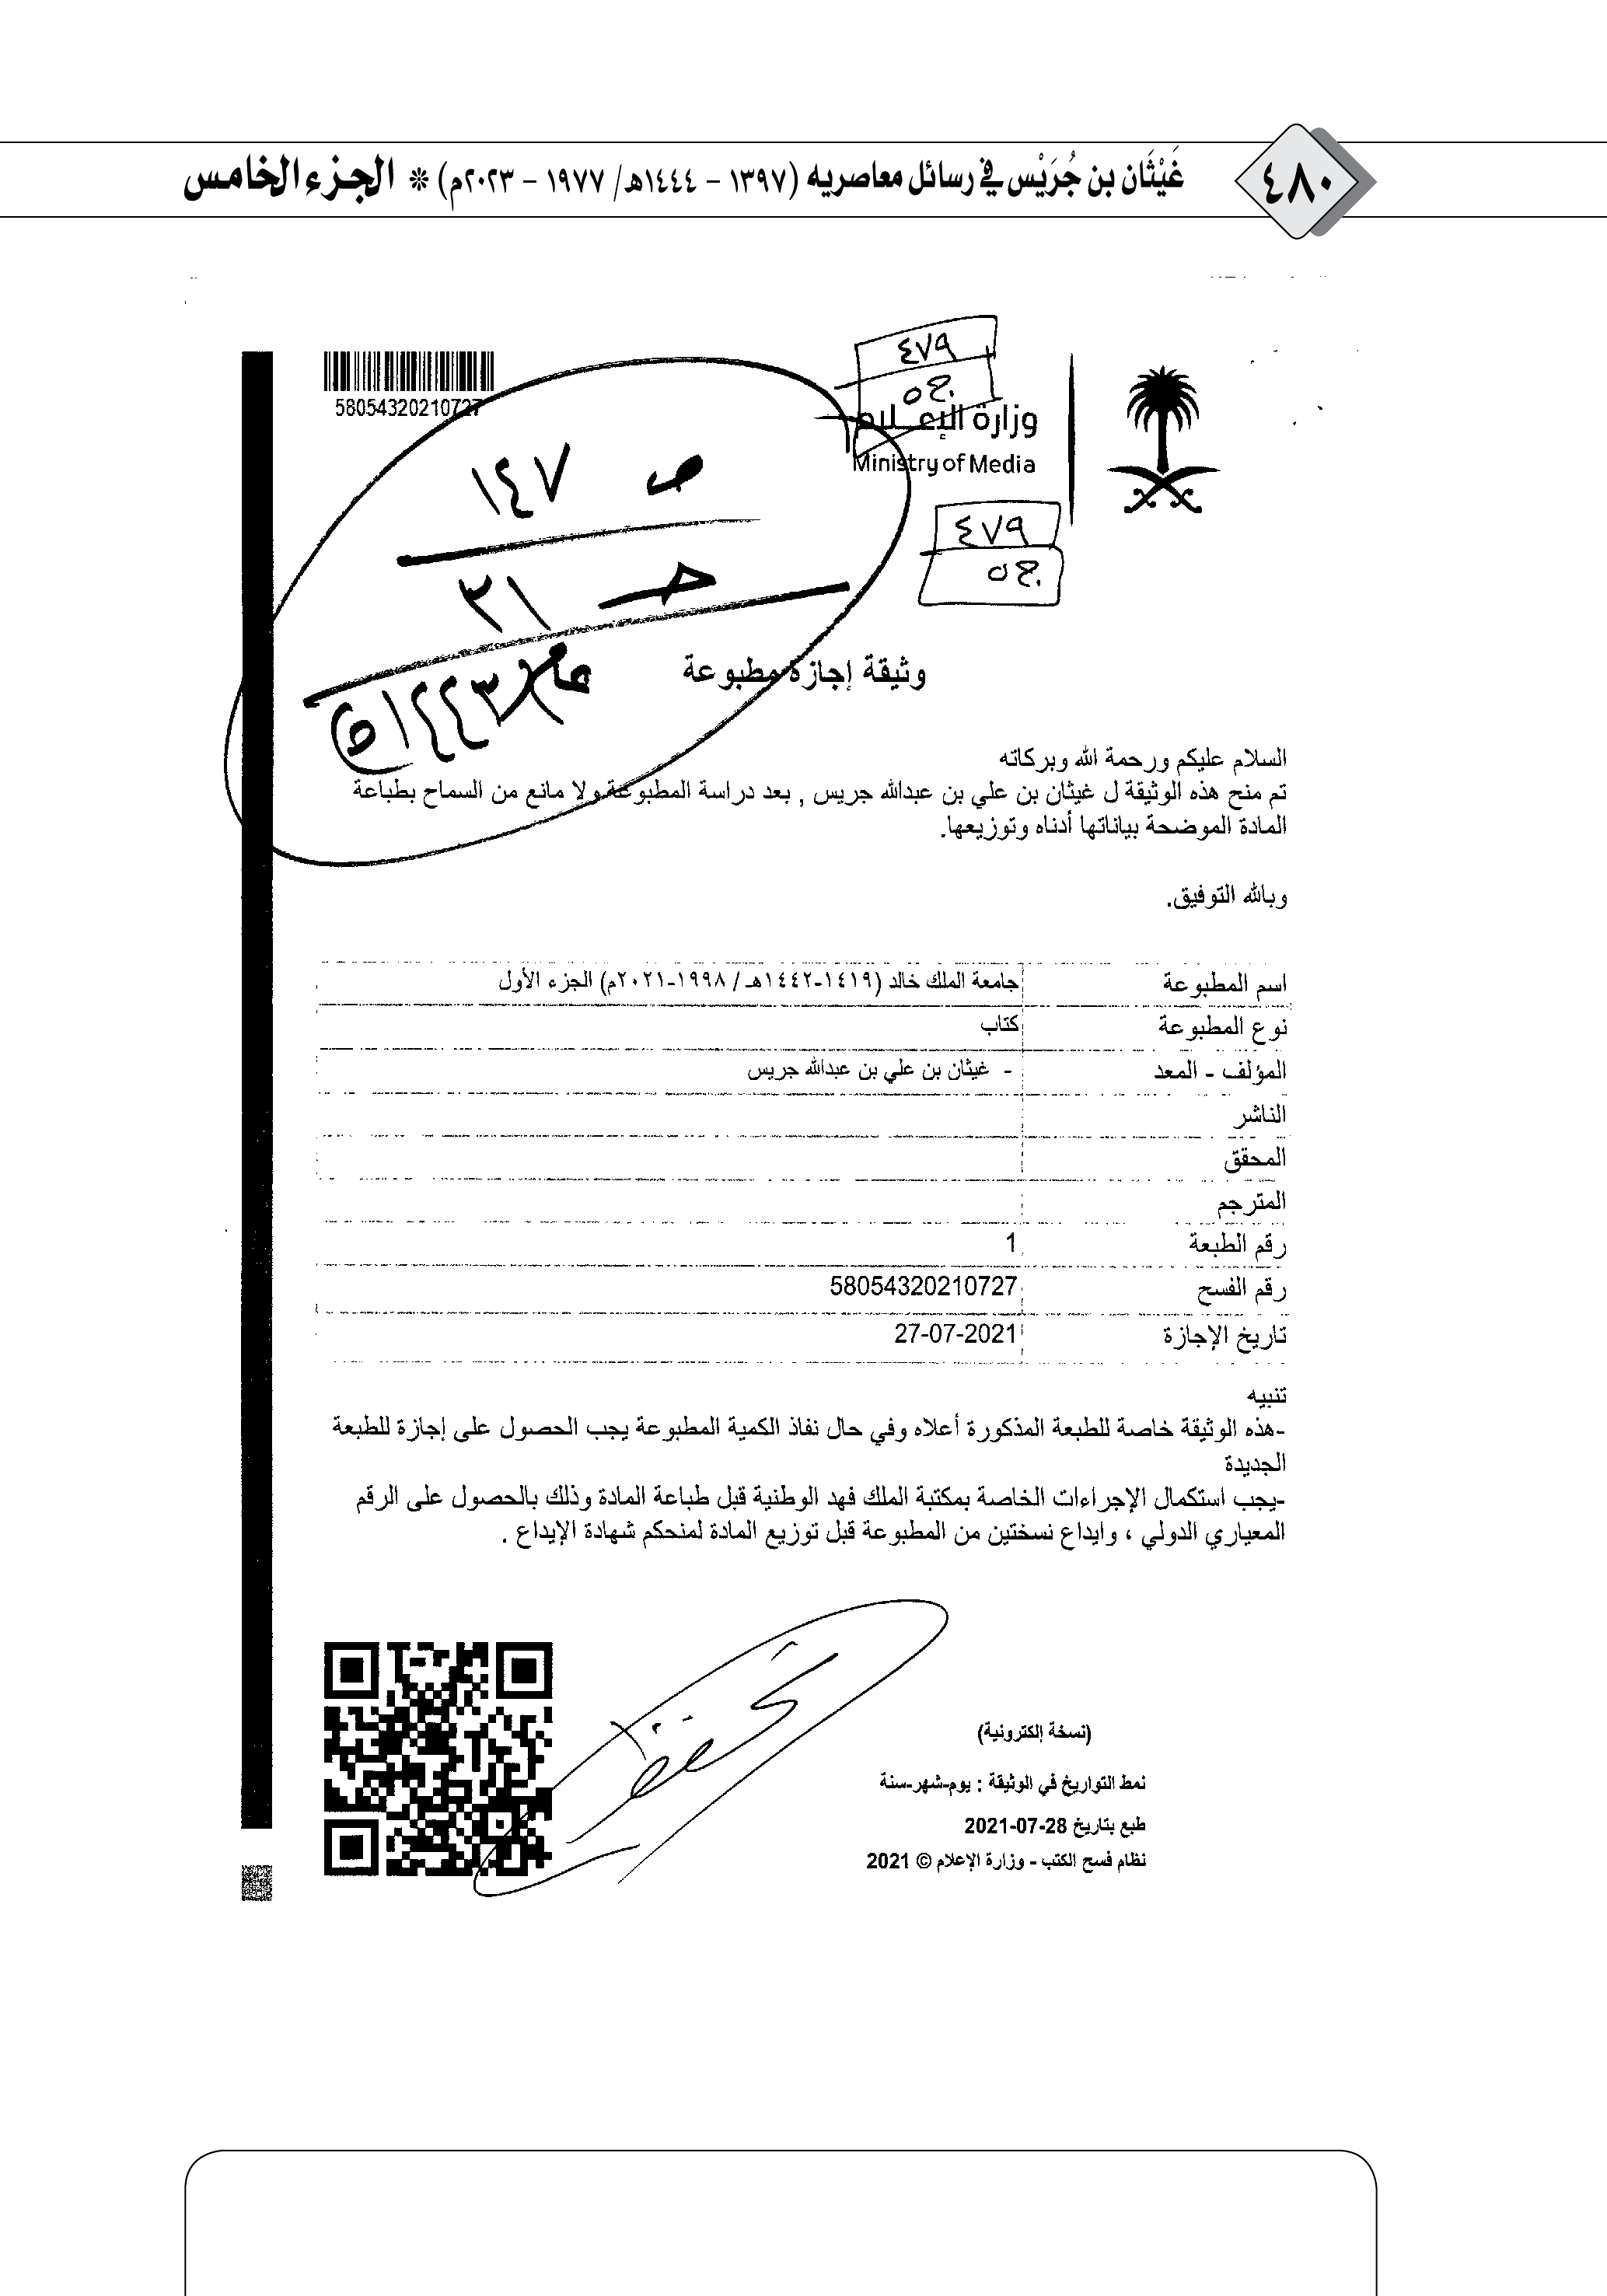 ٤٨٠
غَيْثَان بن جُرَيْس في رسائل معاصريه (١٣٩٧ – ١٤٤٤هـ/ ١٩٧٧ – ٢٠٢٣م) * الجزء الخامس
58054320210727
٤٧٩
ج٥
وزارة الإعلام
Ministry of Media
٤٧٩
ج٥
ص ١٤٧
حـ ٣١
عام ١٤٤٣هـ
وثيقة إجازة مطبوعة
السلام عليكم ورحمة الله وبركاته
تم منح هذه الوثيقة ل غيثان بن علي بن عبدالله جريس , بعد دراسة المطبوعة ولا مانع من السماح بطباعة
المادة الموضحة بياناتها أدناه وتوزيعها.
وبالله التوفيق.
اسم المطبوعة جامعة الملك خالد (١٤١٩-١٤٤٢هـ / ١٩٩٨-٢٠٢١م) الجزء الأول
نوع المطبوعة كتاب
المؤلف - المعد - غيثان بن علي بن عبدالله جريس
الناشر
المحقق
المترجم
رقم الطبعة 1
رقم الفسح 58054320210727
تاريخ الإجازة 27-07-2021
تنبيه
-هذه الوثيقة خاصة للطبعة المذكورة أعلاه وفي حال نفاذ الكمية المطبوعة يجب الحصول على إجازة للطبعة
الجديدة
-يجب استكمال الإجراءات الخاصة بمكتبة الملك فهد الوطنية قبل طباعة المادة وذلك بالحصول على الرقم
المعياري الدولي ، وايداع نسختين من المطبوعة قبل توزيع المادة لمنحكم شهادة الإيداع .
(نسخة إلكترونية)
نمط التواريخ في الوثيقة : يوم-شهر-سنة
طبع بتاريخ 28-07-2021
نظام فسح الكتب - وزارة الإعلام © 2021